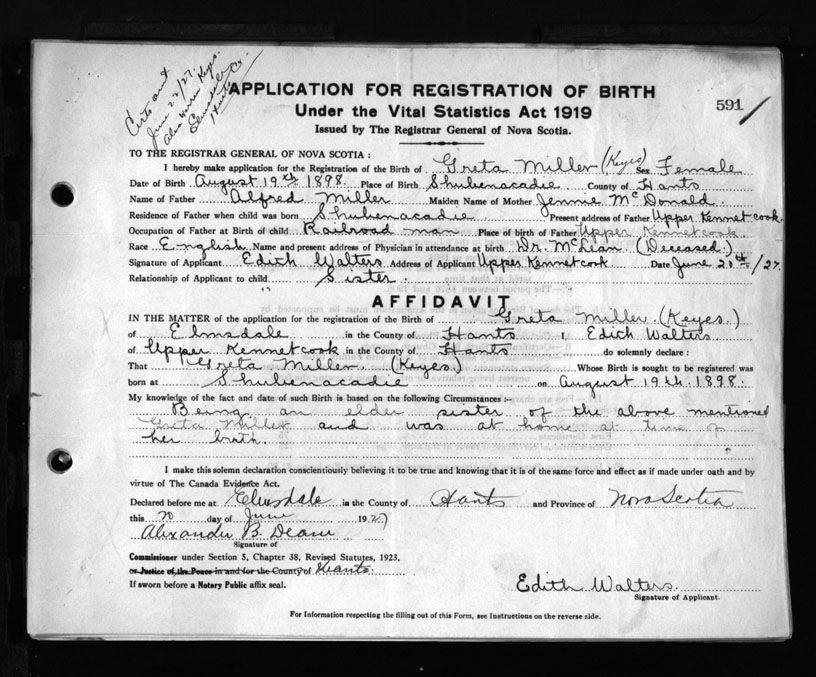 Certs out
June 22/27.
Keys.
Hants Co.
APPLICATION FOR REGISTRATION OF BIRTH
591
Under the Vital Statistics Act 1919
Issued by The Registrar General of Nova Scotia.
TO THE REGISTRAR GENERAL OF NOVA SCOTIA :
I hereby make application for the Registration of the Birth of Greta Miller (Keyes) Sex Female
Date of Birth August 19th 1898. Place of Birth Shubenacadie County of Hants
Name of Father Alfred Miller Maiden Name of Mother Jennie McDonald.
Residence of Father when child was born Shubenacadie Present address of Father Upper Kennetcook.
Occupation of Father at Birth of child Railroad man Place of birth of Father Upper Kennetcook
Race English Name and present address of Physician in attendance at birth Dr. McLean (Deceased.)
Signature of Applicant Edith Walters Address of Applicant Upper Kennetcook Date June 20th/27.
Relationship of Applicant to child Sister.
AFFIDAVIT
IN THE MATTER of the application for the registration of the Birth of Greta Miller (Keyes.)
of Elmsdale in the County of Hants I, Edith Walters
of Upper Kennetcook in the County of Hants do solemnly declare :
That Greta Miller (Keyes.) Whose Birth is sought to be registered was
born at Shubenacadie on August 19th. 1898.
My knowledge of the fact and date of such Birth is based on the following Circumstances :-
Being an elder sister of the above mentioned
Greta Miller and was at home at time of
her birth.
I make this solemn declaration conscientiously believing it to be true and knowing that it is of the same force and effect as if made under oath and by
virtue of The Canada Evidence Act.
Declared before me at Elmsdale in the County of Hants and Province of Nova Scotia
this 20 day of June 1927
Alexander B Deane
Signature of
Commissioner under Section 5, Chapter 38, Revised Statutes, 1923,
or Justice of the Peace in and for the County of Hants.
If sworn before a Notary Public affix seal.
Edith Walters.
Signature of Applicant.
For Information respecting the filling out of this Form, see Instructions on the reverse side.